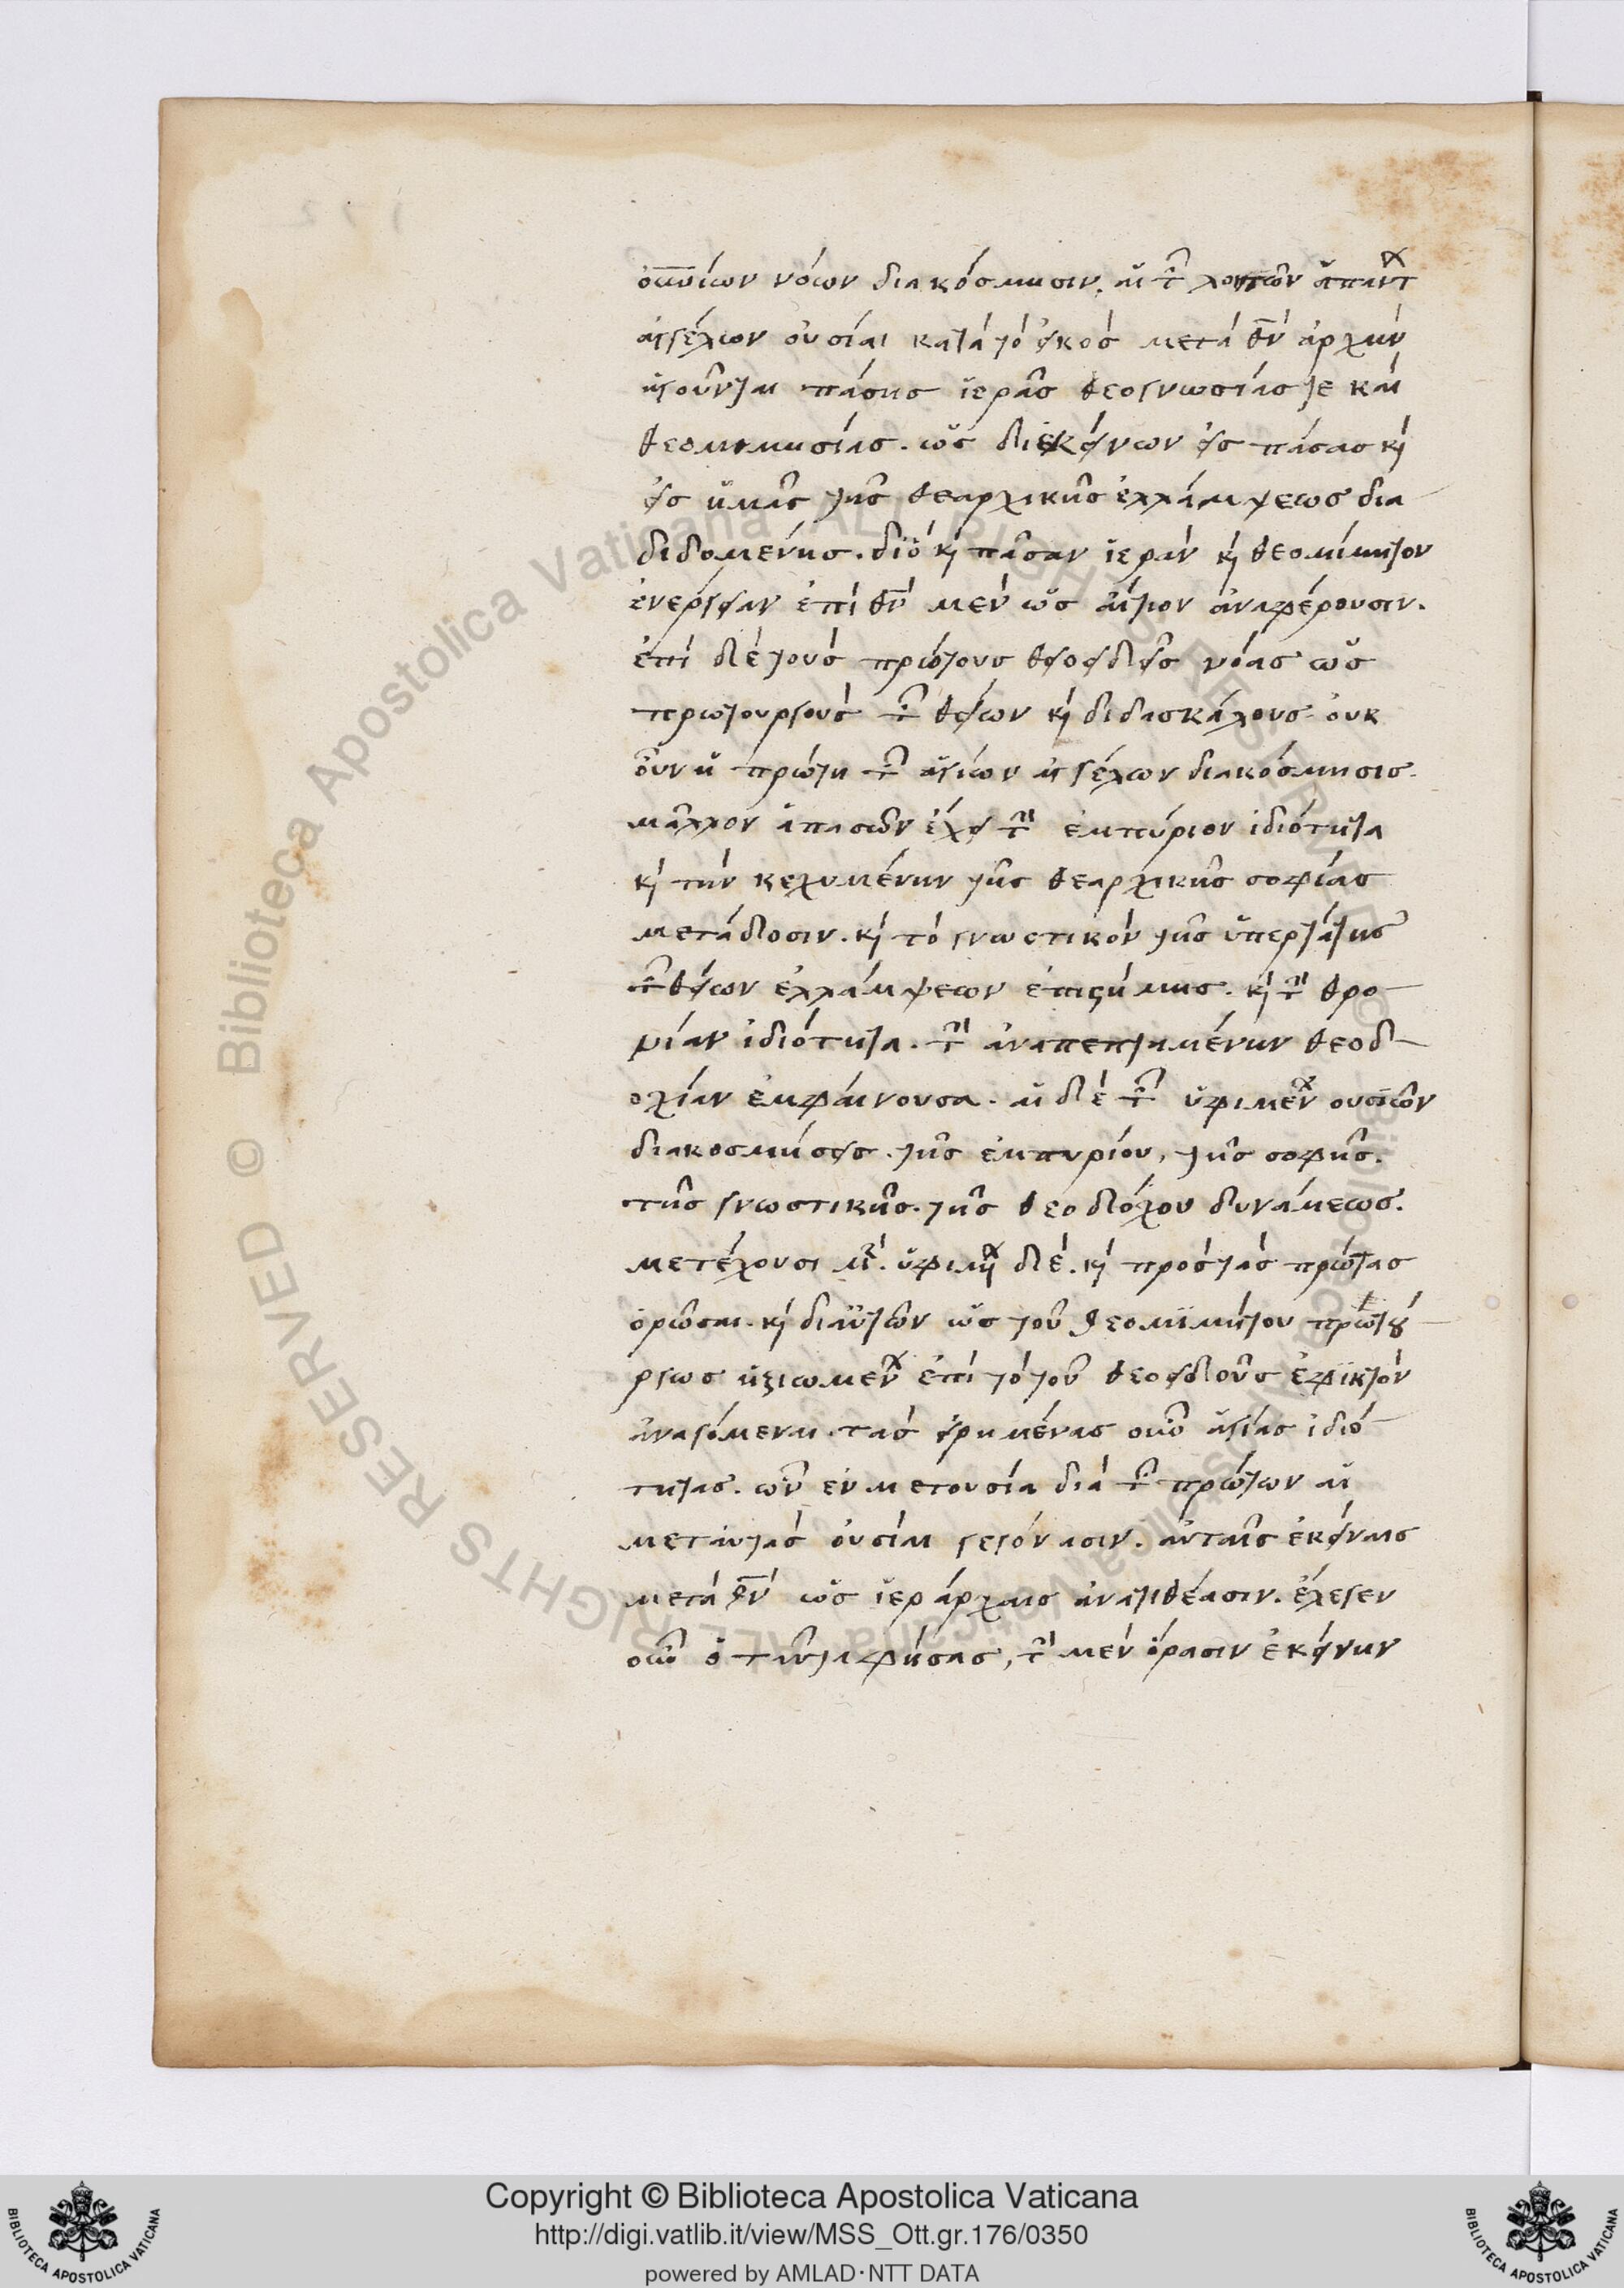 οὐνίων νόων διακόσμησιν. αἱ τῶν λοιπῶν ἁπάντων
ἀγγέλων οὐσίαι κατὰ τὸ εἰκὸς μετὰ θν ἀρχὴν
ἡγοῦνται πάσης ἱερᾶς θεογνωσίας τε καὶ
θεομιμησίας. ὡς δι ἐκείνων εἰς πάσας κὶ
εἰς ἡμᾶς τῆς θεαρχικῆς ἐλλάμψεως δια
διδομένης. διὸ κὶ πᾶσαν ἱερὰν κὶ θεομίμητον
ἐνέργειαν ἐπὶ θν μὲν ὡς αἴτιον ἀναφέρουσιν.
ἐπὶ δὲ τοὺς πρώτους θεοειδεῖς νόας ὡς
πρωτουργοὺς τῶν θείων κὶ διδασκάλους. οὐκ
οῦν ἡ πρώτη τῶν ἁγίων ἀγγέλων διακόσμησις.
μᾶλλον ἁπασῶν ἔχει τὴν ἐμπύριον ἰδιότητα
κὶ τὴν κεχυμένην τῆς θεαρχικῆς σοφίας
μετάδοσιν. κὶ τὸ γνωστικὸν τῆς ὑπερτάτης
τῶν θείων ἐλλάμψεων ἐπιστήμης. κὶ τὴν θρο
νίαν ἰδιότητα. τὴν ἀναπεπταμένην θεοδ
οχίαν ἐμφαίνουσα. αἱ δὲ τῶν ὑφιμένων οὐσιῶν
διακοσμήσεις. τῆς ἐμπυρίου, τῆς σοφῆς.
τῆς γνωστικῆς. τῆς θεοδόχου δυνάμεως.
μετέχουσι μὲν. ὑφιμένως δὲ. κὶ πρὸς τὰς πρώτας
ὁρῶσαι. κὶ δι αὐτῶν ὡς τοῦ θεομιμήτου πρωτου
ργῶς ἠξιωμένων ἐπὶ τὸ τοῦ θεοειδοῦς ἐφικτὸν
ἀναγόμεναι. τὰς εἰρημένας οὖν ἁγίας ἰδιό
τητας. ὧν ἐν μετουσία διὰ τῶν πρώτων αἱ
μετ αὐτὰς οὐσίαι γεγόνασιν. αὐταῖς ἐκείναις
μετὰ θν ὡς ἱεράρχαις ἀνατιθέασιν. ἔλεγεν
οὖν ὁ ταῦτα φήσας, τὴν μὲν ὅρασιν ἐκείνην
Copyright © Biblioteca Apostolica Vaticana
http://digi.vatlib.it/view/MSS_Ott.gr.176/0350
powered by AMLAD·NTT DATA